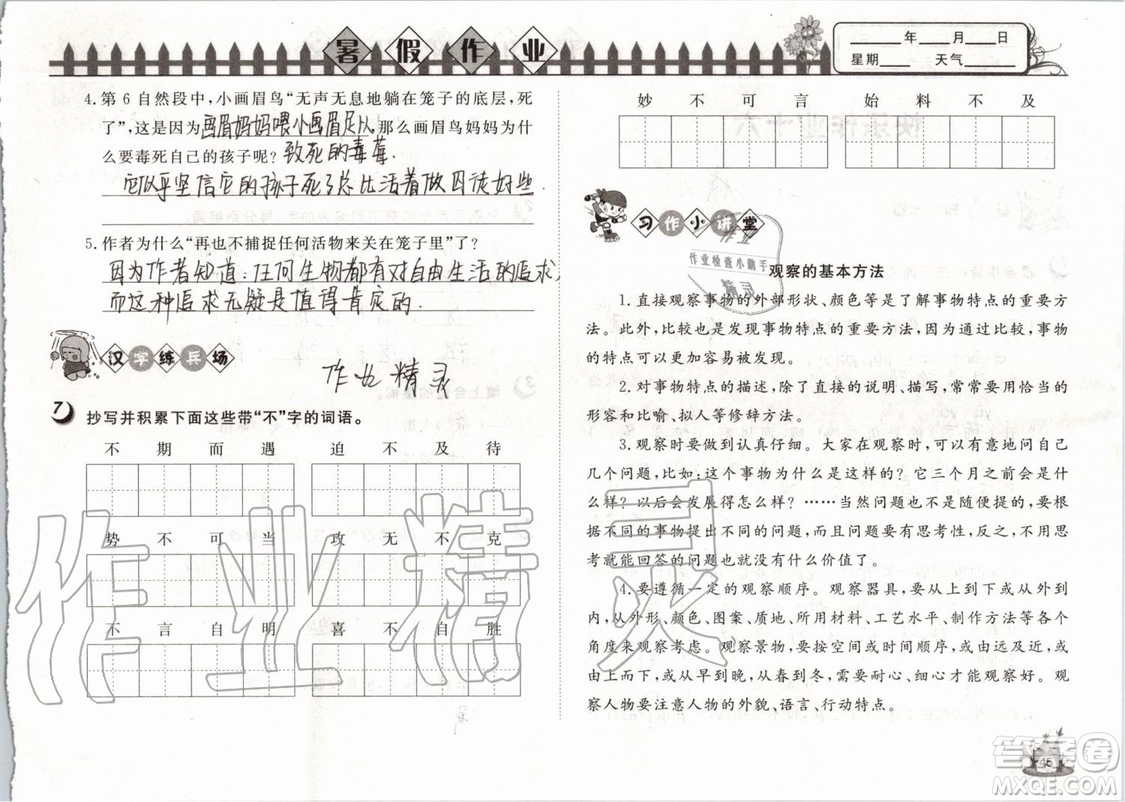 暑假作业
____年____月____日
星期____ 天气____
4. 第 6 自然段中，小画眉鸟“无声无息地躺在笼子的底层，死
了”，这是因为画眉妈妈喂小画眉足以，那么画眉鸟妈妈为什
么要毒死自己的孩子呢？致死的毒莓.
它似乎坚信它的孩子死了总比活着做囚徒好些
5. 作者为什么“再也不捕捉任何活物来关在笼子里”了？
因为作者知道：任何生物都有对自由生活的追求,
而这种追求无疑是值得肯定的.
汉字练兵场
作业精灵
7 抄写并积累下面这些带“不”字的词语。
不期而遇 迫不及待
势不可当 攻无不克
不言自明 喜不自胜
妙不可言 始料不及
习作小讲堂
作业检查小助手
精灵
观察的基本方法
1. 直接观察事物的外部形状、颜色等是了解事物特点的重要方
法。此外，比较也是发现事物特点的重要方法，因为通过比较，事物
的不同之处更加容易被发现。
2. 对事物特点的描述，除了直接的说明、描写，常常要用恰当的
形容和比喻、拟人等修辞方法。
3. 观察时要做到认真仔细。大家在观察时，可以有意地问自己
几个问题，比如：这个事物为什么是这样的？它三个月之前会是什
么样？以后会发展得怎么样？……当然问题也不是随便提的，要根
据不同的事物提出不同的问题，而且问题要有思考性，反之，不用思
考就能回答的问题也就没什么价值了。
4. 要遵循一定的观察顺序。观察器具，从上到下或从外到
内，从外形、颜色、图案、质地、所用材料、工艺水平、制作方法等各个
角度来观察考虑。观察景物，要按空间或时间顺序，从上到下，从左
到右，从早到晚，从春到冬，需要耐心、细心才能观察好。观
察人物要注意人物的外貌、语言、行动特点。
作业精灵
45
答案圈
MXQE.COM